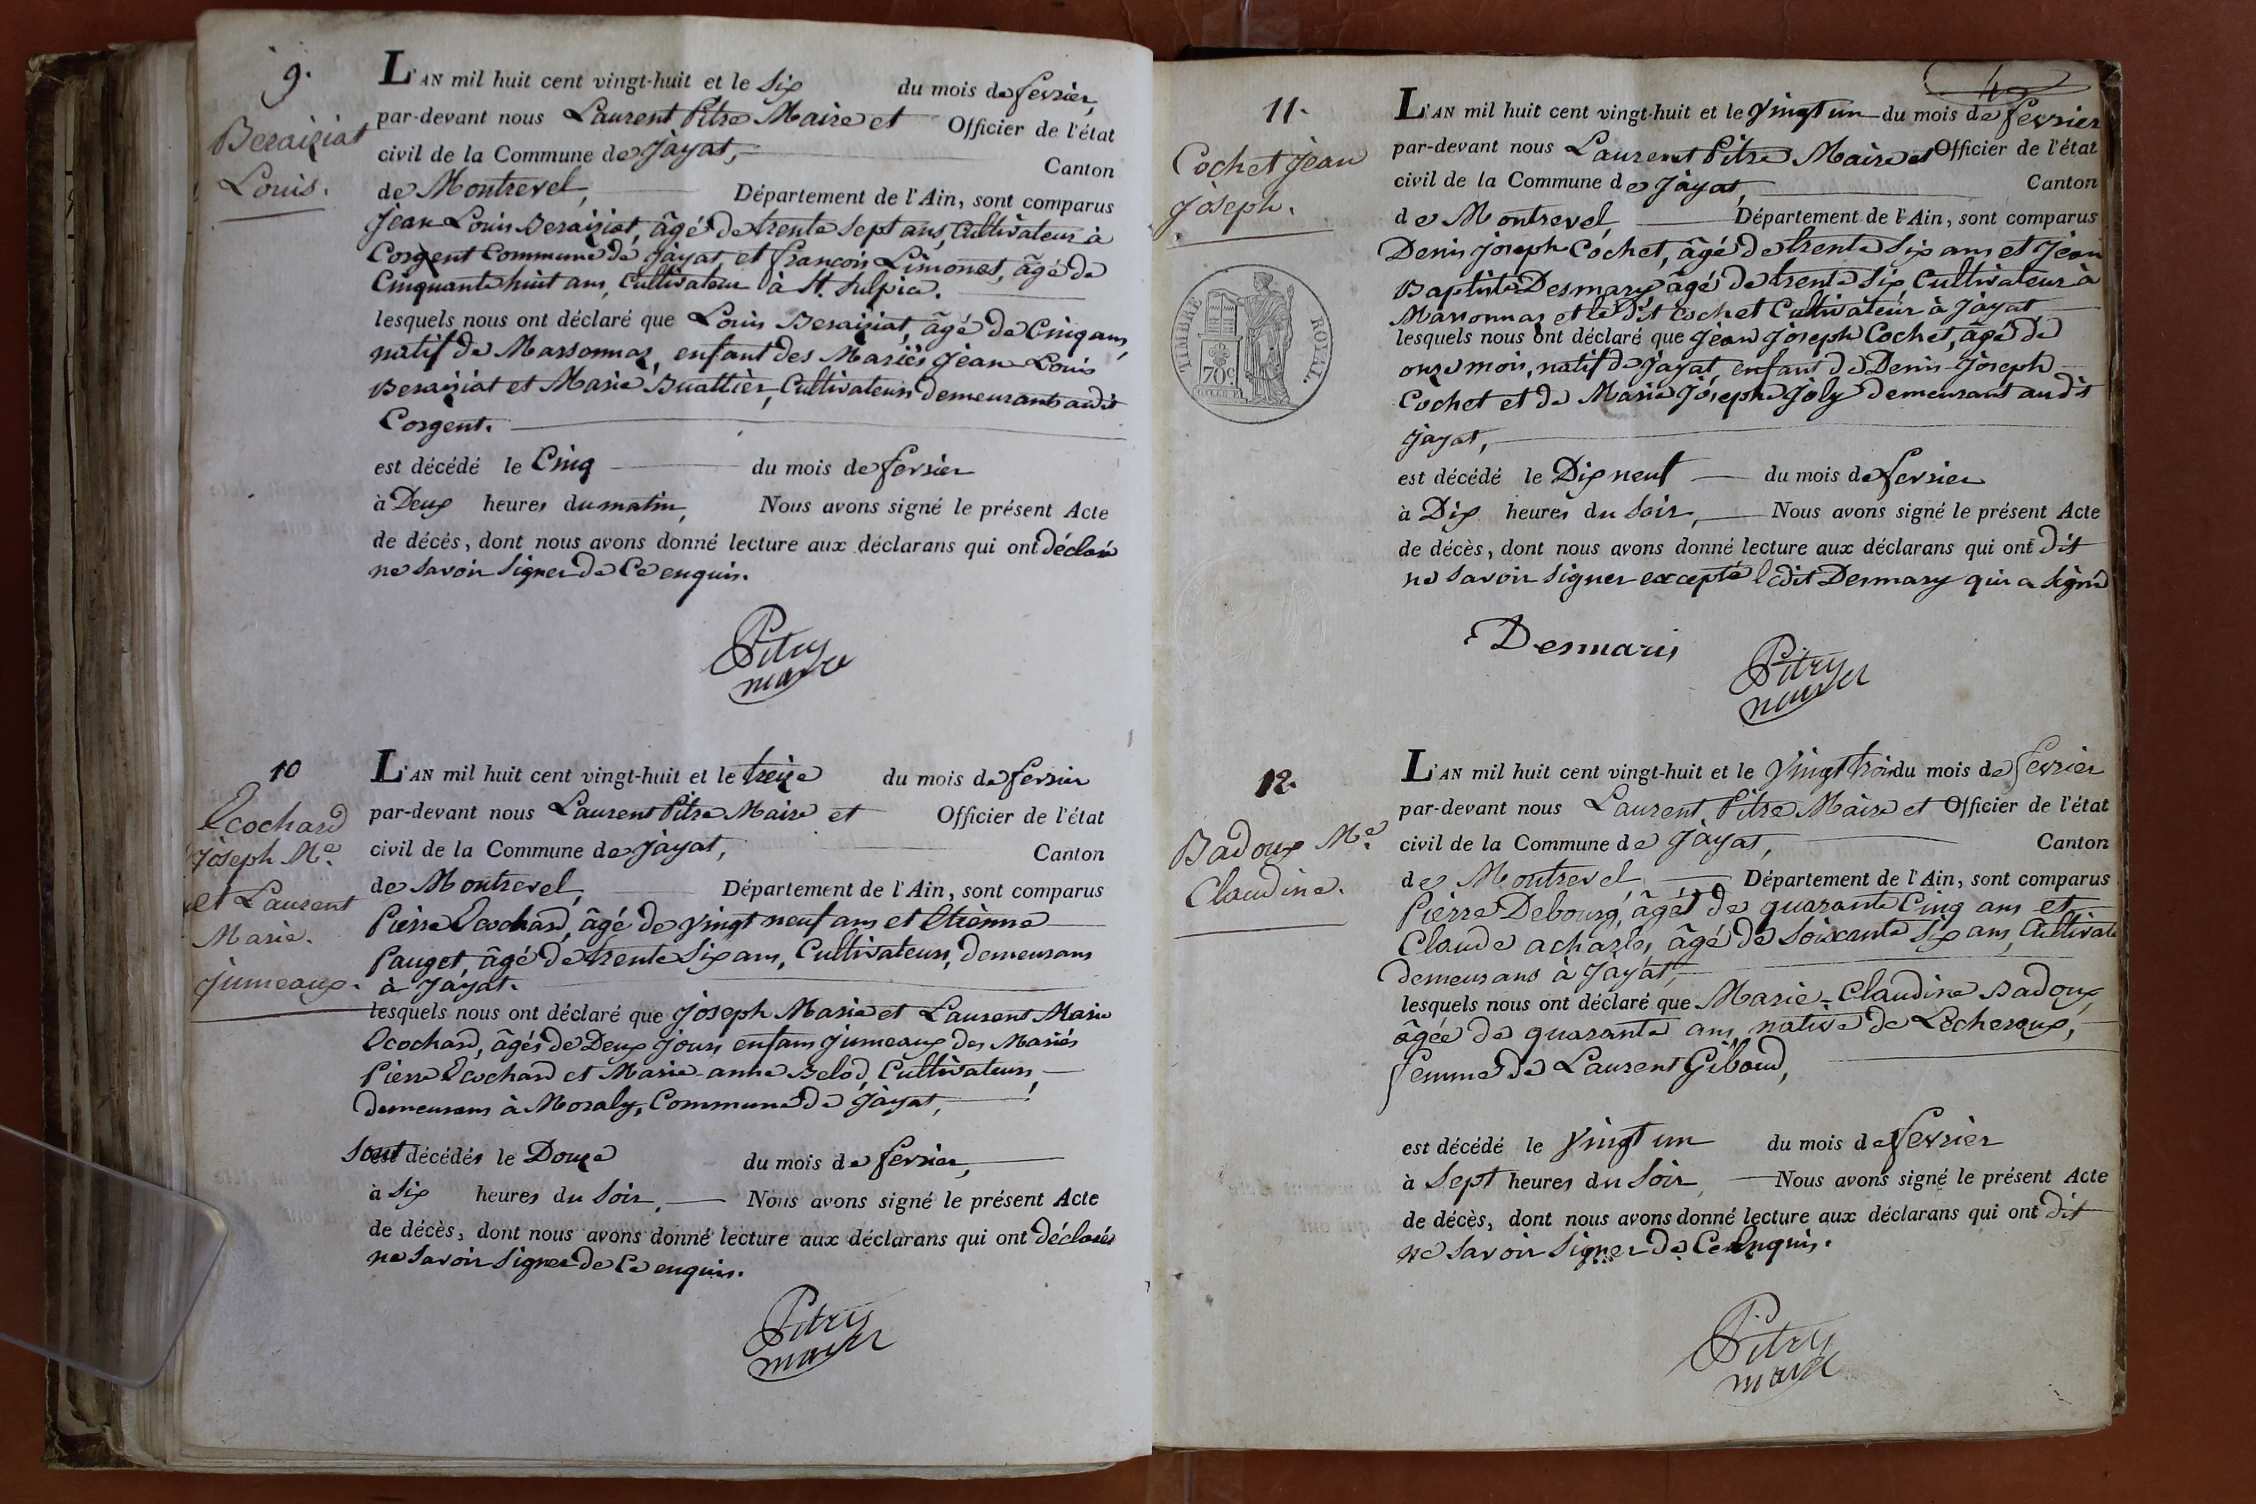 9.
Beraiziat
Louis.
L'AN mil huit cent vingt-huit et le Six du mois de fevrier,
par-devant nous Laurent Pitre Maire et Officier de l'état
civil de la Commune de Jayat, Canton
de Montrevel, Département de l'Ain, sont comparus
Jean Louis Beraiziat, âgé de trente sept ans, Cultivateur à
Corgent Commune de Jayat et françois Limonet, âgé de
Cinquante huit ans, Cultivateur à St. Sulpice.
lesquels nous ont déclaré que Louis Beraiziat, âgé de Cinq ans,
natif de Marsonnaz, enfant des Mariés Jean Louis
Beraiziat et Marie Buattier, Cultivateurs demeurants audit
Corgent.
est décédé le Cinq du mois de fevrier
à Deux heures du matin, Nous avons signé le présent Acte
de décès, dont nous avons donné lecture aux déclarans qui ont déclaré
ne Savoir Signer de Ce enquis.
Pitre
maire
10
Ecochard
Joseph Me.
et Laurent
Marie.
jumeaux.
L'AN mil huit cent vingt-huit et le treize du mois de fevrier
par-devant nous Laurent Pitre Maire et Officier de l'état
civil de la Commune de Jayat, Canton
de Montrevel, Département de l'Ain, sont comparus
Pierre Ecochard, âgé de vingt neuf ans et Etienne
Pauget, âgé de trente Six ans, Cultivateurs, demeurans
à Jayat.
lesquels nous ont déclaré que Joseph Marie et Laurent Marie
Ecochard, âgés de Deux jours enfans jumeaux des Mariés
Pierre Ecochard et Marie-anne Belod, Cultivateurs,
demeurans à Moraly, Commune de Jayat,
Sont décédés le Douze du mois de fevrier,
à Six heures du Soir, Nous avons signé le présent Acte
de décès, dont nous avons donné lecture aux déclarans qui ont déclarés
ne Savoir Signer de Ce enquis.
Pitre
maire
11.
Cochet Jean
Joseph.
TIMBRE ROYAL.
70c
L'AN mil huit cent vingt-huit et le Vingt un du mois de fevrier
par-devant nous Laurent Pitre Maire et Officier de l'état
civil de la Commune de Jayat, Canton
de Montrevel, Département de l'Ain, sont comparus
Denis Joseph Cochet, âgé de trente Six ans et Jean
Baptiste Desmary âgé de trente Six Cultivateur à
Marsonnaz et le Dit Cochet Cultivateur à Jayat
lesquels nous ont déclaré que Jean Joseph Cochet, âgé de
onze mois, natif de Jayat, enfant de Denis-Joseph
Cochet et de Marie Josephe Joly demeurant audit
Jayat,
est décédé le Dix neuf du mois de fevrier
à Dix heures du Soir, Nous avons signé le présent Acte
de décès, dont nous avons donné lecture aux déclarans qui ont dit
ne Savoir Signer excepté ledit Desmary qui a Signé
Desmaris
Pitre
maire
12.
Badoux Me.
Claudine.
L'AN mil huit cent vingt-huit et le Vingt trois du mois de fevrier
par-devant nous Laurent Pitre Maire et Officier de l'état
civil de la Commune de Jayat, Canton
de Montrevel, Département de l'Ain, sont comparus
Pierre Debourg, âgé de quarante Cinq ans et
Claude acharles, âgé de Soixante Six ans, Cultivate
demeurans à Jayat,
lesquels nous ont déclaré que Marie-Claudine Badoux,
âgée de quarante ans, native de Lecheroux,
femme de Laurent Giboud,
est décédé le Vingt un du mois de fevrier
à Sept heures du Soir, Nous avons signé le présent Acte
de décès, dont nous avons donné lecture aux déclarans qui ont dit
ne Savoir Signer de Ce Enquis.
Pitre
maire